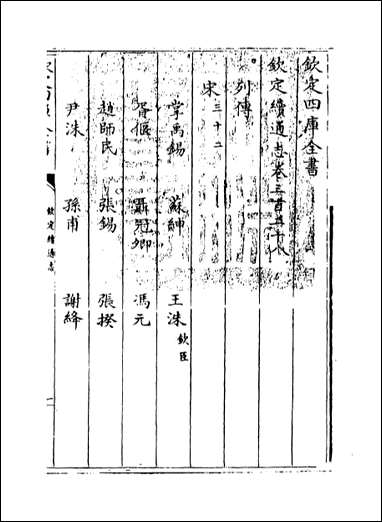 欽定四庫全書
欽定續通志卷三百五十八
列傳
宋三十二
掌禹錫 蘇紳 王洙 欽臣
胥偃 聶冠卿 馮元
趙師民 張錫 張揆
尹洙 孫甫 謝絳
欽定續通志